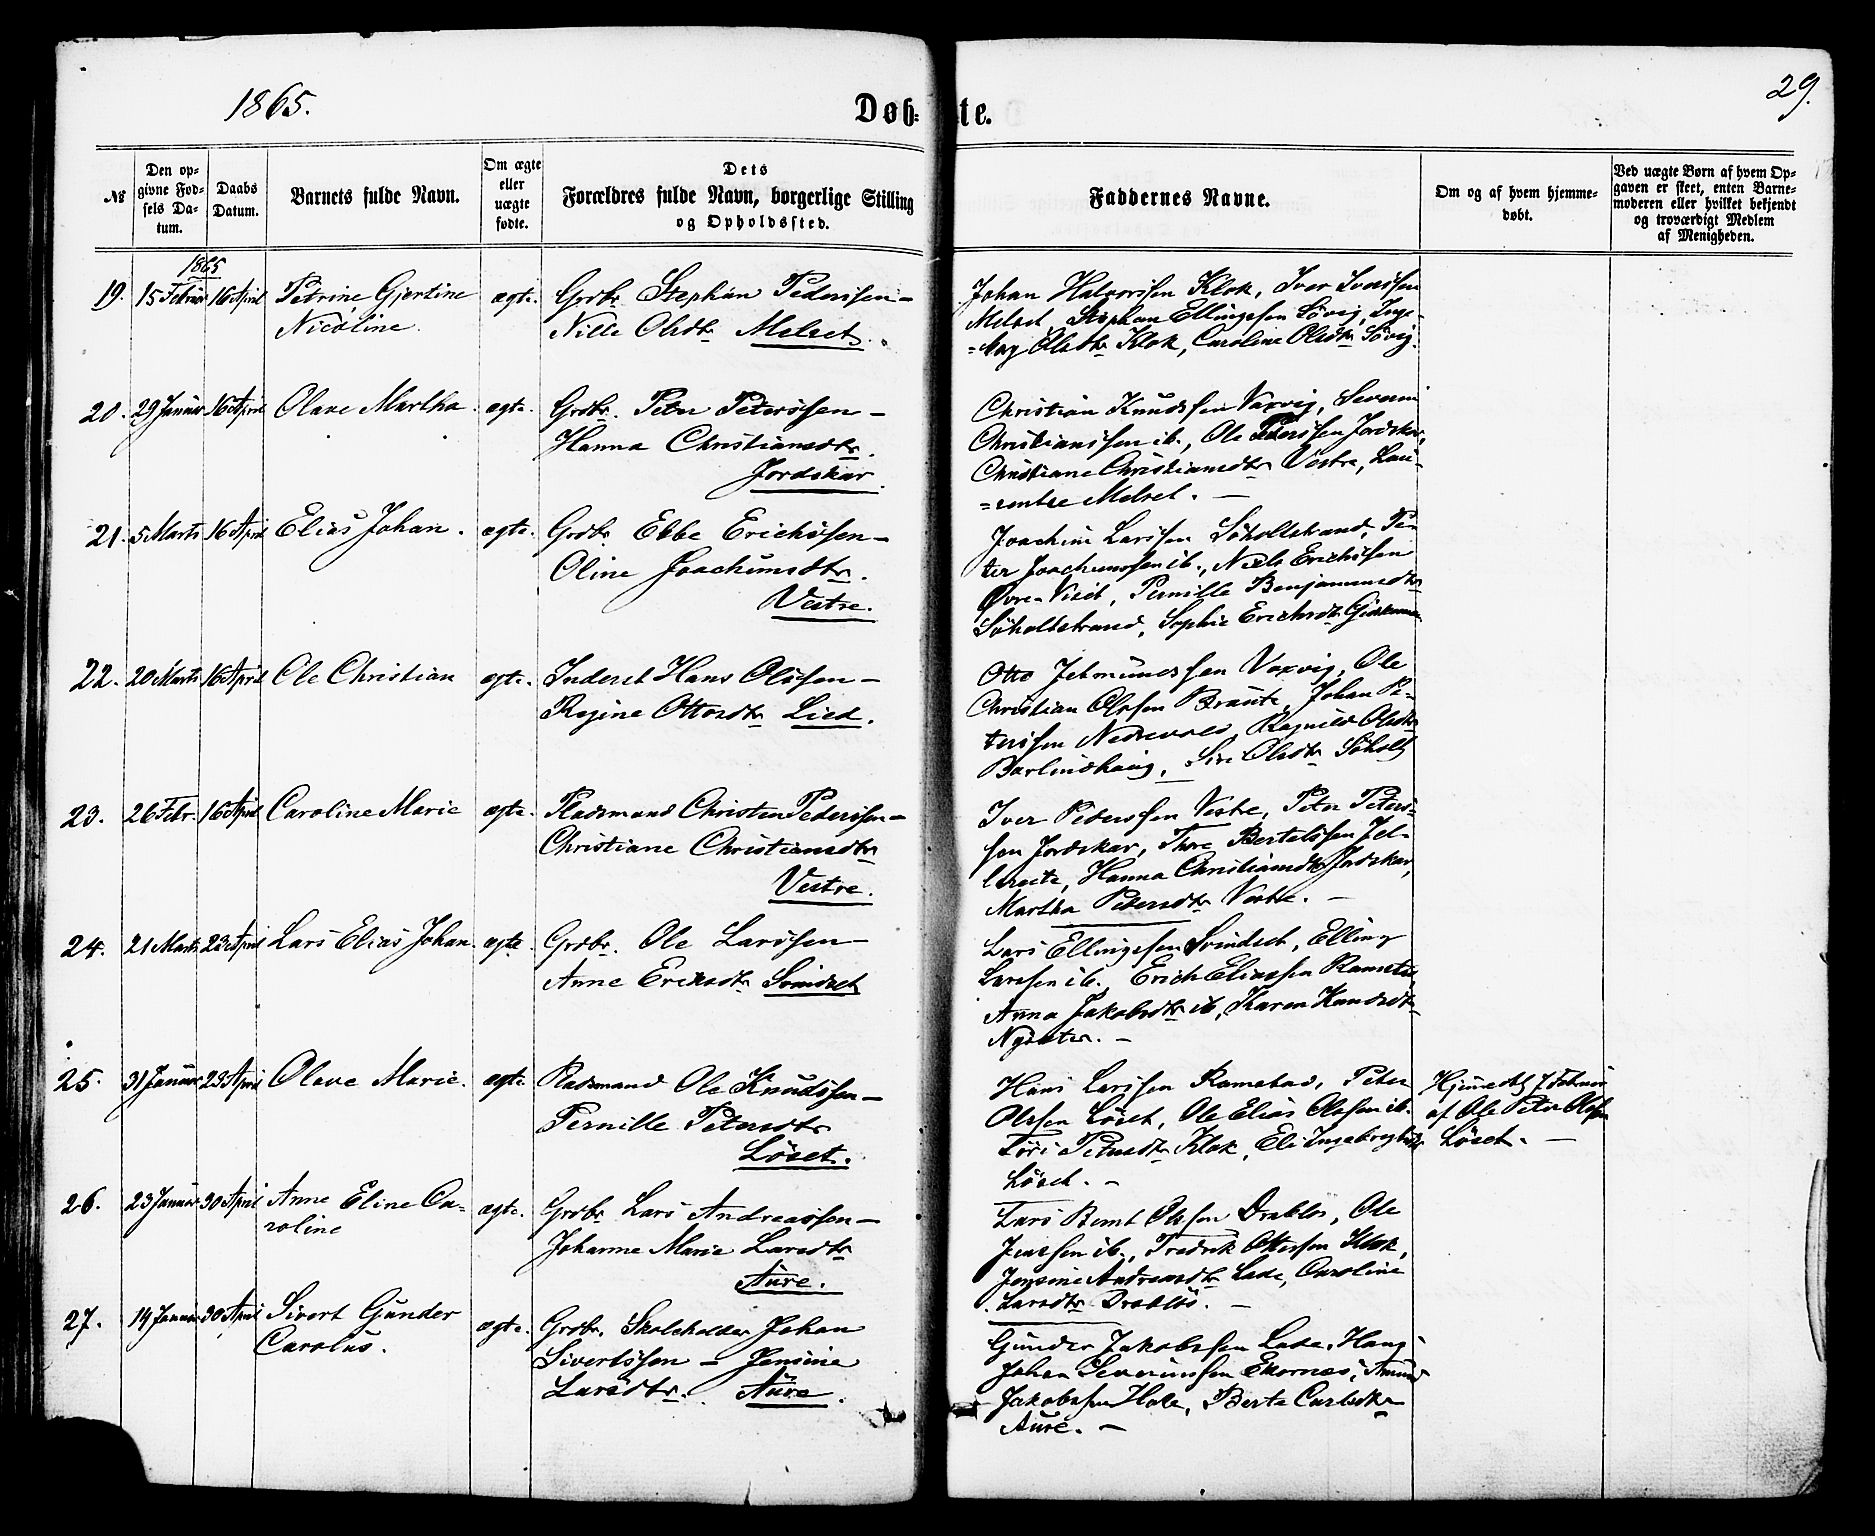 1865.
Døbte.
29.
№
Den opgivne Fødsels Datum.
Daabs Datum.
Barnets fulde Navn.
Om ægte eller uægte fødte.
Dets Forældres fulde Navn, borgerlige Stilling og Opholdssted.
Faddernes Navne.
Om og af hvem hjemmedøbt.
Ved uægte Børn af hvem Opgaven er skeet, enten Barnemoderen eller hvilket bekjendt og troværdigt Medlem af Menigheden.
1865
19. 15 Februar 16 April Petrine Gjertine ægte. Grdbr. Stephan Pederssen –
Nicoline. Nille Olsdtr. Melset.
Johan Halvorssen Klok, Iver Iverssen
Melset, Stephan Ellingssen Løvig, Inge-
=borg Olsdtr Klok, Caroline Olsdtr Løvig.
20. 29 Januar 16 April Olave Martha. ægte. Grdbr. Peter Peterssen –
Hanna Christiansdtr.
Jordskar.
Christian Knudssen Vaxvig, Severin
Christianssen ib., Ole Pederssen Jordskar,
Christiane Christiansdtr Vestre, Lau-
=rentse Melset. –
21. 5 Marts 16 April Elias Johan. ægte. Grdbr. Ebbe Erichssen –
Oline Joachimsdtr.
Vestre.
Joachim Larssen Søholtstrand, Pe-
ter Joachimssen ib., Niels Erichssen
Øvre-Viset, Pernille Benjaminsdtr
Søholtstrand, Sophie Erichsdtr
22. 20 Marts 16 April Ole Christian ægte. Inderst Hans Olssen –
Regine Ottosdtr Lied.
Otto Jetmundssen Vaxvig, Ole
Christian Olssen Braute, Johan Pe-
terssen Nedrevold, Ragnild Olsdtr
Barlindhaug, Siri Olsdtr Søholt
23. 26 Febr. 16 April Caroline Marie ægte. Pladsmand Christen Pederssen –
Christiane Christiansdtr
Vestre.
Iver Pederssen Vestre, Peter Peters-
sen Jordskar, Thore Bertelssen Fjel-
braute, Hanna Christiansdtr Jordskar,
Martha Pedersdtr Vestre. –
24. 21 Marts 23 April Lars Elias Johan. ægte Grdbr. Ole Larssen –
Anne Eriksdtr Svindset
Lars Ellingssen Svindset, Elling
Larssen ib., Erich Eliassen Ramstad,
Anna Jakobsdtr ib, Karen Knudsdtr
Nysæter. –
25. 31 Januar 23 April Olave Marie. ægte. Pladsmand Ole Knudssen –
Pernille Petersdtr
Løset.
Hans Larssen Ramstad, Peter
Olssen Løset, Ole Elias Olssen ib.
Petersdtr Klok, Eli Ingebregtsdtr
Løset. –
Hjemmedøbt 7 Februar
af Ole Peter Olssen
Løset. –
26. 23 Januar 30 April Anne Eline Ca- ægte. Grdbr Lars Andreassen –
roline Johanne Marie Larsdtr
Aure.
Lars Bernt Olssen Drabløs, Ole
Jenssen ib., Fredrik Ottossen Klok,
Jensine Andreasdtr Lade, Caroline
Larsdtr Drabløs. –
27. 14 Januar 30 April Sivert Gunder ægte. Grdbr. Skoleholder Johan
Carolus. Sivertssen – Jensine
Larsdtr. Aure.
Gunder Jakobssen Lade, Hans
Johan Severinssen Ekornes, Amund
Jakobssen Hole, Berte Carlsdtr
Aure. –